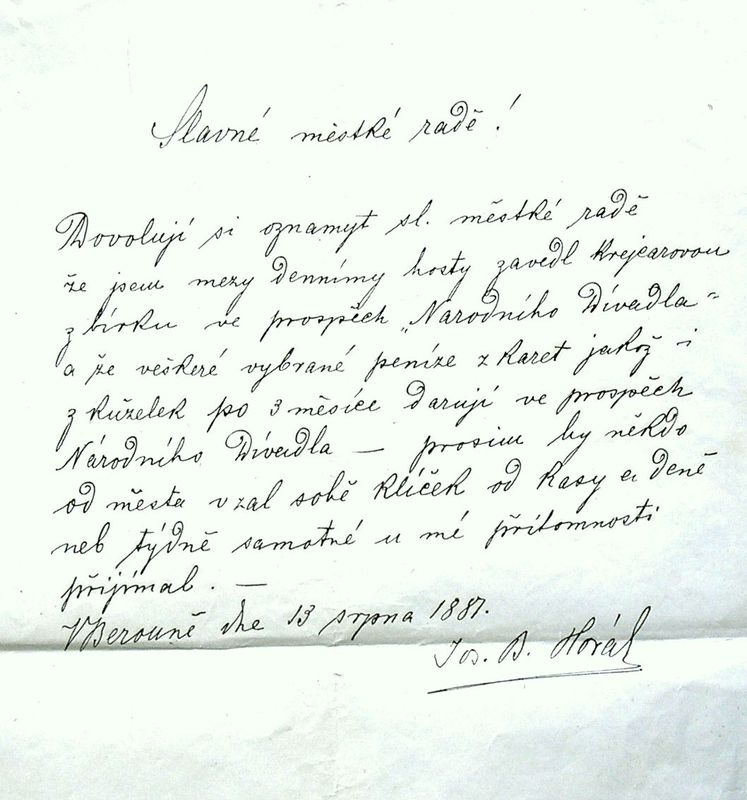 Slavné městké radě!
Dovolují si oznamyt sl. městké radě
že jsem mezy dennímy hosty zavedl Krejcarovou
zbírku ve prospěch „Narodního Dívadla"
a že veškeré vybrané peníze z karet jakož i
z kůzelek po 3 měsíce darují ve prospěch
Národního Dívadla — prosim by někdo
od města vzal sobě klíček od kasy a deně
neb týdně samotné u mé přítomnosti
přijímal. —
V Berouně dne 13 srpna 1881.
Jos. B. Horák